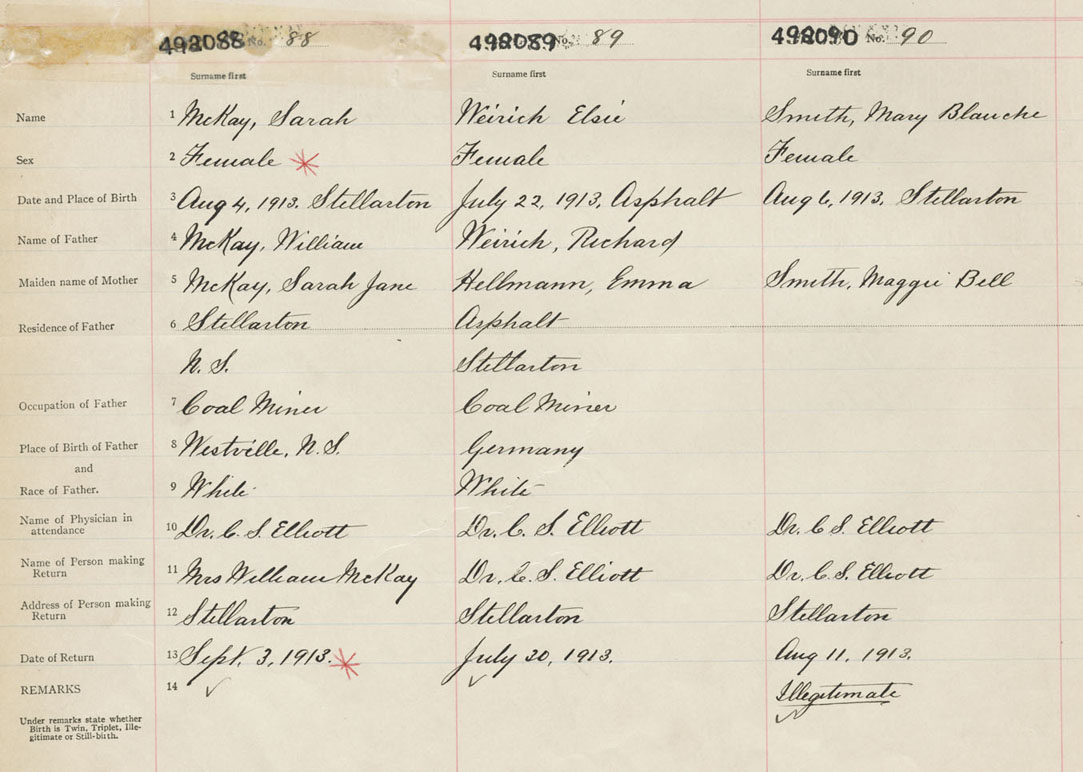 498088 No. 88 498089 No. 89 498090 No. 90
Surname first Surname first Surname first
Name 1 McKay, Sarah Weirich Elsie Smith, Mary Blanche
Sex 2 Female Female Female
Date and Place of Birth 3 Aug 4, 1913. Stellarton July 22, 1913, Asphalt Aug 6, 1913, Stellarton
Name of Father 4 McKay, William Weirich, Richard
Maiden name of Mother 5 McKay, Sarah Jane Hellmann, Emma Smith, Maggie Bell
Residence of Father 6 Stellarton Asphalt
N. S. Stellarton
Occupation of Father 7 Coal Miner Coal Miner
Place of Birth of Father 8 Westville, N. S. Germany
and
Race of Father. 9 White White
Name of Physician in
attendance 10 Dr. C. S. Elliott Dr. C. S. Elliott Dr. C S. Elliott
Name of Person making
Return 11 Mrs William McKay Dr. C. S. Elliott Dr. C. S. Elliott
Address of Person making
Return 12 Stellarton Stellarton Stellarton
Date of Return 13 Sept. 3, 1913. July 30, 1913. Aug 11, 1913.
REMARKS 14 Illegitimate
Under remarks state whether
Birth is Twin, Triplet, Ille-
gitimate or Still-birth.